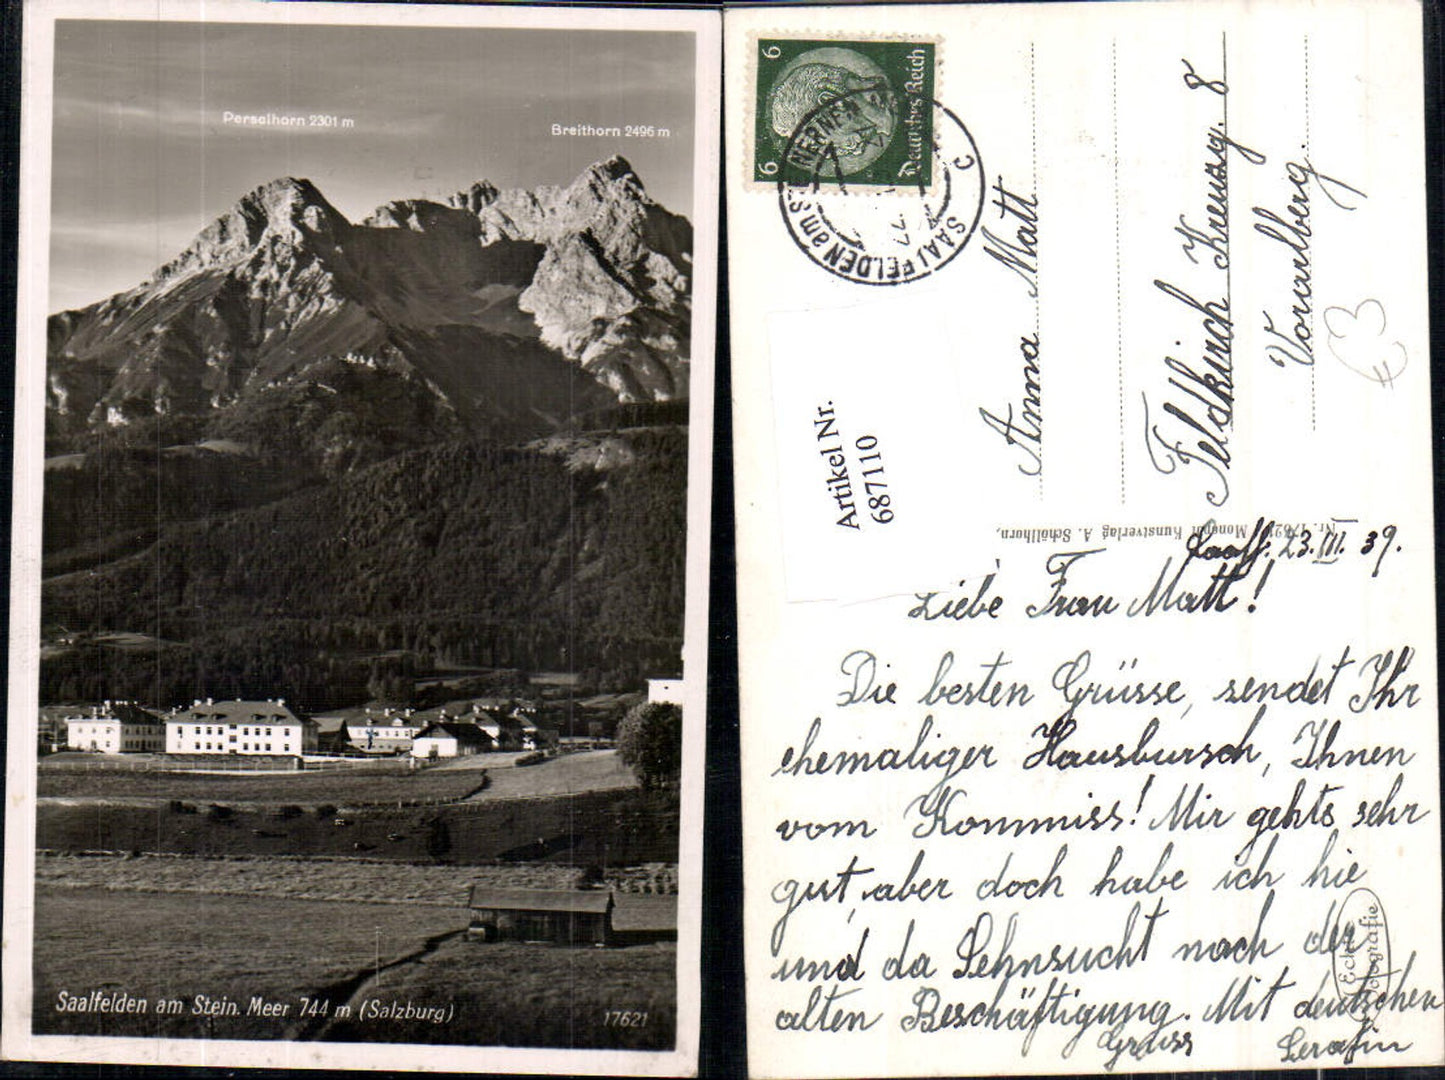 Persalhorn 2301 m
Breithorn 2496 m
Saalfelden am Stein. Meer 744 m (Salzburg)
17621
6
6
Deutsches Reich
SAALFELDEN am STEINERNEN
C
Anna Matt
Feldkirch Kreuzg. 8
Vorarlberg.
€ 3
Artikel Nr.
687110
Monopol Kunstverlag A. Schöllhorn,
Saalf. 23. III. 39.
Liebe Frau Matt!
Die besten Grüsse, sendet Ihr
ehemaliger Hausbursch, Ihnen
vom Kommiss! Mir gehts sehr
gut, aber doch habe ich hie
und da Sehnsucht nach der
alten Beschäftigung. Mit deutschen
Gruss Serafin
Echte
Fotografie